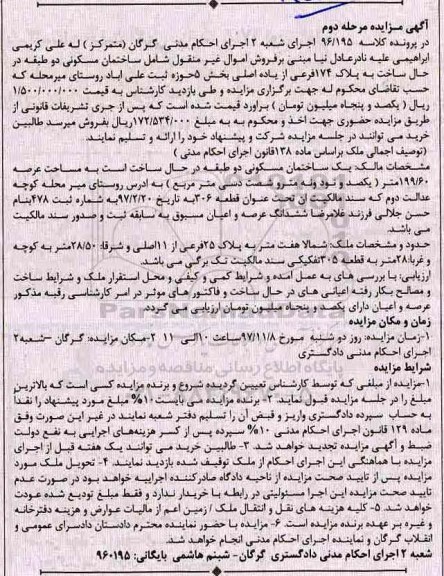 آگهی مـزایده مرحله دوم
در پرونده کلاسه ۹۶/۱۹۵ اجرای شعبه ۲ اجرای احکام مدنی گرگان (متمرکز) له علی کریمی
ابراهیمی علیه نادرعادل نیا مبنی برفروش اموال غیر منقول شامل ساختمان مسکونی دو طبقه در
حال ساخت به پلاک ۱۷۴فرعی از یاده اصلی بخش ۵حوزه ثبت علی آباد روستای میرمحله که
حسب تقاضای محکوم له جهت برگزاری مزایده و طی بازدید کارشناس به قیمت ۱/۵۰۰/۰۰۰/۰۰۰
ریال ( یکصد و پنجاه میلیون تومان ) براورد قیمت شده است که پس از جری تشریفات قانونی از
طریق مزایده حضوری جهت اخذ و محکوم به به مبلغ ۱۷۲/۵۳۴/۰۰۰ریال بفروش میرسد طالبین
خرید می توانند در جلسه مزایده شرکت و پیشنهاد خود را ارائه و تسلیم نمایند.
(توصیف اجمالی ملک براساس ماده ۱۳۸قانون اجرای احکام مدنی )
مشخصات مالک: یک ساختمان مسکونی دو طبقه در حال ساخت است به مساحت عرصه
۱۹۹/۶۰متر ( یکصد و نود ونه متر و شصت دسی متر مربع ) به ادرس روستای میر محله کوچه
عدالت دوم که سند مالکیت ان تحت عنوان قطعه ۳۰۶به تاریخ ۹۷/۲/۲۰به شماره ثبت ۴۷۸بنام
حسن جلالی فرزند غلامرضا ششدانگ عرصه و اعیان مسبوق به سابقه ثبت و صدور سند مالکیت
می باشد.
حدود و مشخصات ملک: شمالا هفت متر به پلاک ۲۵فرعی از ۱۱اصلی و شرقا: ۲۸/۵۰متر به کوچه
و غربا:۲۸متر به قطعه ۳۰۵تفکیکی سند مالکیت تک برگی می باشد.
ارزیابی: با بررسی های به عمل امده و شرایط کمی و کیفی و محل استقرار ملک و شرایط ساخت
و مصالح بکار رفته اعیانی های در حال ساخت و فاکتور های موثر در امر کارشناسی رقبه مذکور
عرصه و اعیان دارای یکصد و پنجاه میلیون تومان ارزیابی می گردد.
زمان و مکان مزایده
۱-زمان مزایده: روز دو شنبه مورخ ۹۷/۱۱/۸ساعت ۱۰الی ۱۱ ۲-مکان مزایده: گرگان –شعبه۲
اجرای احکام مدنی دادگستری
شرایط مزایده
۱-مزایده از مبلغی که توسط کارشناس تعیین گردیده شروع و برنده مزایده کسی است که بالاترین
مبلغ را در جلسه مزایده قبول نماید. ۲- برنده مزایده می بایست ۱۰% مبلغ مورد پیشنهاد را نقدا
به حساب سپرده دادگستری واریز و قبض آن را تسلیم دفتر شعبه نمایند در غیر این صورت وفق
ماده ۱۲۹ قانون اجرای احکام مدنی ۱۰% سپرده پس از کسر هزینه‌های اجرایی به نفع دولت
ضبط و آگهی مزایده تجدید خواهد شد. ۳- طالبین خرید می توانند یک هفته قبل از اجرای
مزایده با هماهنگی این اجرای احکام از ملک توقیف شده بازدید نمایند. ۴- تحویل ملک مورد
مزایده پس از تایید صحت مزایده از ناحیه دادگاه صادرکننده اجراییه خواهد بود در صورت عدم
تایید صحت مزایده این اجرا مسئولیتی در رابطه با خریدار ندارد و فقط مبلغ تودیع شده عودت
خواهد شد. ۵- کلیه هزینه های نقل و انتقال ملک / زمین اعم از مالیات عوارض و هزینه دفترخانه
و غیره بر عهده برنده مزایده است. ۶- مزایده با حضور نماینده محترم دادستان دادسرای عمومی و
انقلاب گرگان و نماینده اجرای احکام مدنی انجام خواهد شد.
شعبه ۲ اجرای احکام مدنی دادگستری گرگان– شبنم هاشمی بایگانی: ۹۶۰۱۹۵